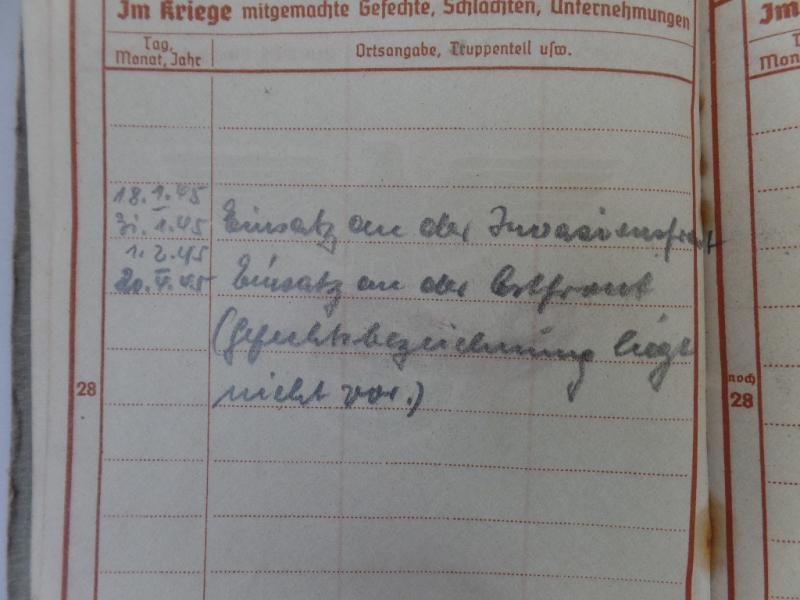 Im Kriege mitgemachte Gefechte, Schlachten, Unternehmungen
Tag, Monat, Jahr
Ortsangabe, Truppenteil usw.
18. I. 45
31. 1. 45 Einsatz an der Invasionsfront
1. 2. 45
20. V. 45 Einsatz an der Ostfront
(Gefechtsbezeichnung liegt
nicht vor.)
28
noch
28
Im